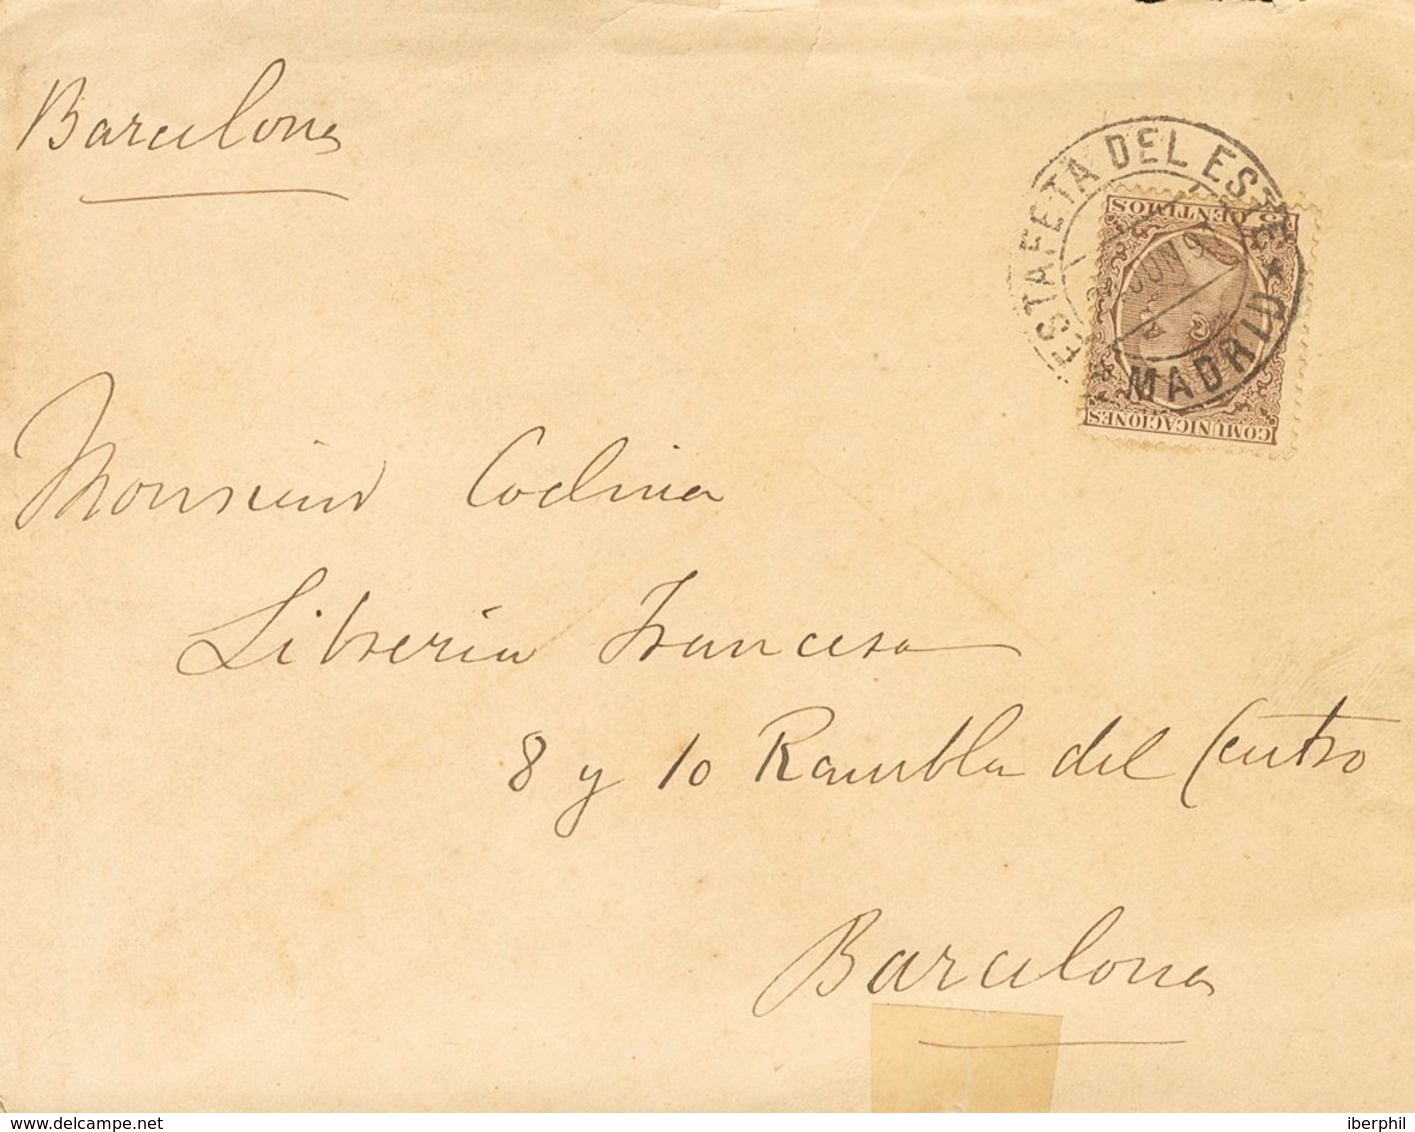 Barcelona
ESTAFETA DEL ESTE
JUN 9
MADRID
CENTIMOS
COMUNICACIONES
Monsieur Codina
Libreria Francesa
8 y 10 Rambla del Centro
Barcelona
www.delcampe.net
iberphil